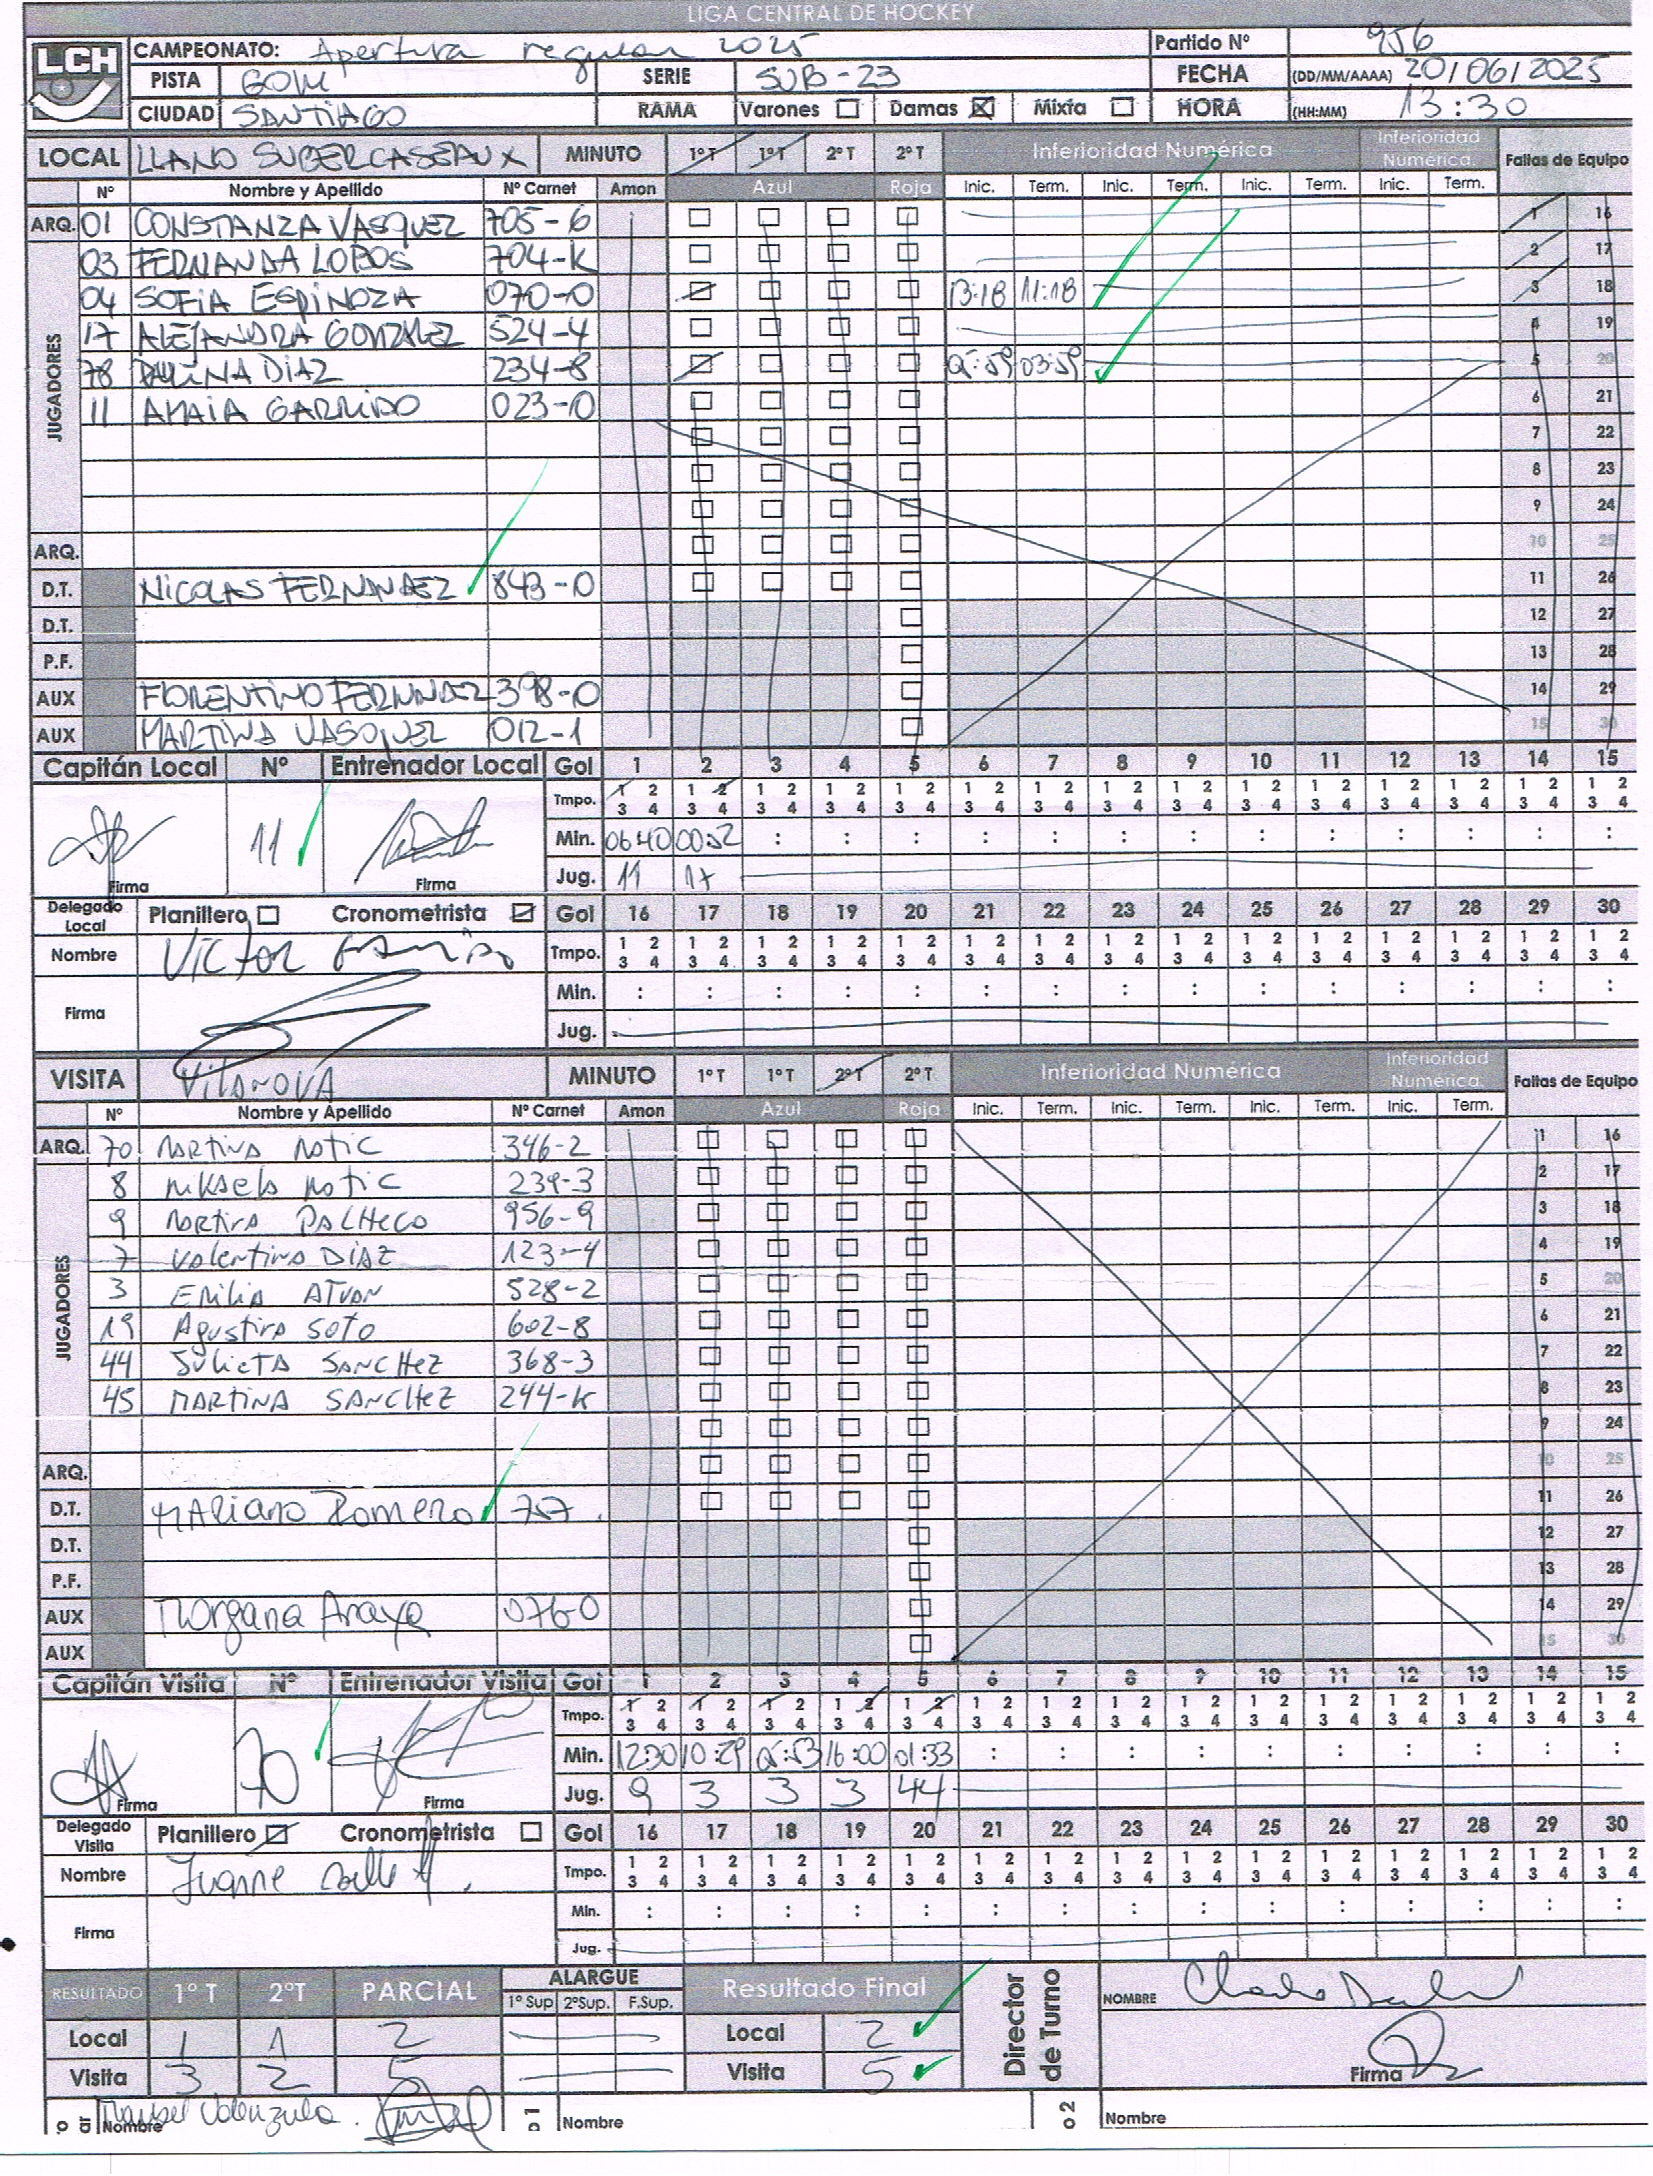 LIGA CENTRAL DE HOCKEY
LCH
CAMPEONATO: Apertura regular 2025 Partido Nº 956
PISTA GOM SERIE SUB-23 FECHA (DD/MM/AAAA) 20/06/2025
CIUDAD SANTIAGO RAMA Varones Damas Mixta HORA (HH:MM) 13:30
LOCAL LLANO SUBERCASEAUX MINUTO 1º T 1º T 2º T 2º T Inferioridad Numérica Inferioridad Numérica. Faltas de Equipo
Nº Nombre y Apellido Nº Carnet Amon Azul Roja Inic. Term. Inic. Term. Inic. Term. Inic. Term.
ARQ. 01 CONSTANZA VASQUEZ 705-6 1 16
JUGADORES
03 FERNANDA LOBOS 704-K 2 17
04 SOFIA ESPINOZA 070-0 13:18 11:18 3 18
17 ALEJANDRA GONZALEZ 524-4 4 19
78 PAULINA DIAZ 234-8 05:59 03:59 5 20
11 AMAIA GARRIDO 023-0 6 21
7 22
8 23
9 24
ARQ. 10 25
D.T. NICOLAS FERNANDEZ 843-0 11 26
D.T. 12 27
P.F. 13 28
AUX FLORENTINO FERNNDEZ 398-0 14 29
AUX MARTINA VASQUEZ 012-1 15 30
Capitán Local Nº Entrenador Local Gol 1 2 3 4 5 6 7 8 9 10 11 12 13 14 15
Tmpo. 1 2 1 2 1 2 1 2 1 2 1 2 1 2 1 2 1 2 1 2 1 2 1 2 1 2 1 2 1 2
3 4 3 4 3 4 3 4 3 4 3 4 3 4 3 4 3 4 3 4 3 4 3 4 3 4 3 4 3 4
11 Min. 06:40 00:52 : : : : : : : : : : : : :
Firma Firma Jug. 11 17
Delegado Local Planillero Cronometrista Gol 16 17 18 19 20 21 22 23 24 25 26 27 28 29 30
Nombre Victor Garrido Tmpo. 1 2 1 2 1 2 1 2 1 2 1 2 1 2 1 2 1 2 1 2 1 2 1 2 1 2 1 2 1 2
3 4 3 4 3 4 3 4 3 4 3 4 3 4 3 4 3 4 3 4 3 4 3 4 3 4 3 4 3 4
Firma Min. : : : : : : : : : : : : : : :
Jug.
VISITA VILANOVA MINUTO 1º T 1º T 2º T 2º T Inferioridad Numérica Inferioridad Numérica. Faltas de Equipo
Nº Nombre y Apellido Nº Carnet Amon Azul Roja Inic. Term. Inic. Term. Inic. Term. Inic. Term.
ARQ. 70 Martina Matic 346-2 1 16
JUGADORES
8 Mikaela Matic 239-3 2 17
9 Martina PACHECO 956-9 3 18
7 Valentina DIAZ 123-4 4 19
3 EMILIA ATUAN 528-2 5 20
19 Agustina SOTO 602-8 6 21
44 JULIETA SANCHEZ 368-3 7 22
45 MARTINA SANCHEZ 244-K 8 23
9 24
ARQ. 10 25
D.T. MARIANO Romero 757. 11 26
D.T. 12 27
P.F. 13 28
AUX Morgana Araya 076-0 14 29
AUX 15 30
Capitán Visita Nº Entrenador Visita Gol 1 2 3 4 5 6 7 8 9 10 11 12 13 14 15
Tmpo. 1 2 1 2 1 2 1 2 1 2 1 2 1 2 1 2 1 2 1 2 1 2 1 2 1 2 1 2 1 2
3 4 3 4 3 4 3 4 3 4 3 4 3 4 3 4 3 4 3 4 3 4 3 4 3 4 3 4 3 4
70 Min. 12:30 10:29 05:53 16:00 01:33 : : : : : : : : : :
Firma Firma Jug. 9 3 3 3 44
Delegado Visita Planillero Cronometrista Gol 16 17 18 19 20 21 22 23 24 25 26 27 28 29 30
Nombre Ivanne Tmpo. 1 2 1 2 1 2 1 2 1 2 1 2 1 2 1 2 1 2 1 2 1 2 1 2 1 2 1 2 1 2
3 4 3 4 3 4 3 4 3 4 3 4 3 4 3 4 3 4 3 4 3 4 3 4 3 4 3 4 3 4
Firma Min. : : : : : : : : : : : : : : :
Jug.
RESULTADO 1º T 2ºT PARCIAL ALARGUE Resultado Final Director de Turno NOMBRE
1º Sup 2ºSup. F.Sup.
Local 1 1 2 Local 2
Visita 3 2 5 Visita 5 Firma
Nombre Manuel Valenzuela. o 1 Nombre o 2 Nombre